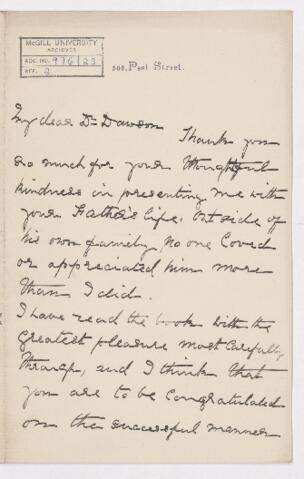 McGILL UNIVERSITY
ARCHIVES
ACC. NO. 976/23
REF. 2
Peel Street.
My dear Dr Dawson
Thank you
so much for your thoughtful
kindness in presenting me with
your Father's life. Outside of
his own family, no one loved
or appreciated him more
than I did.
I have read the book with the
greatest pleasure most carefully
through, and I think that
you are to be congratulated
on the successful manner